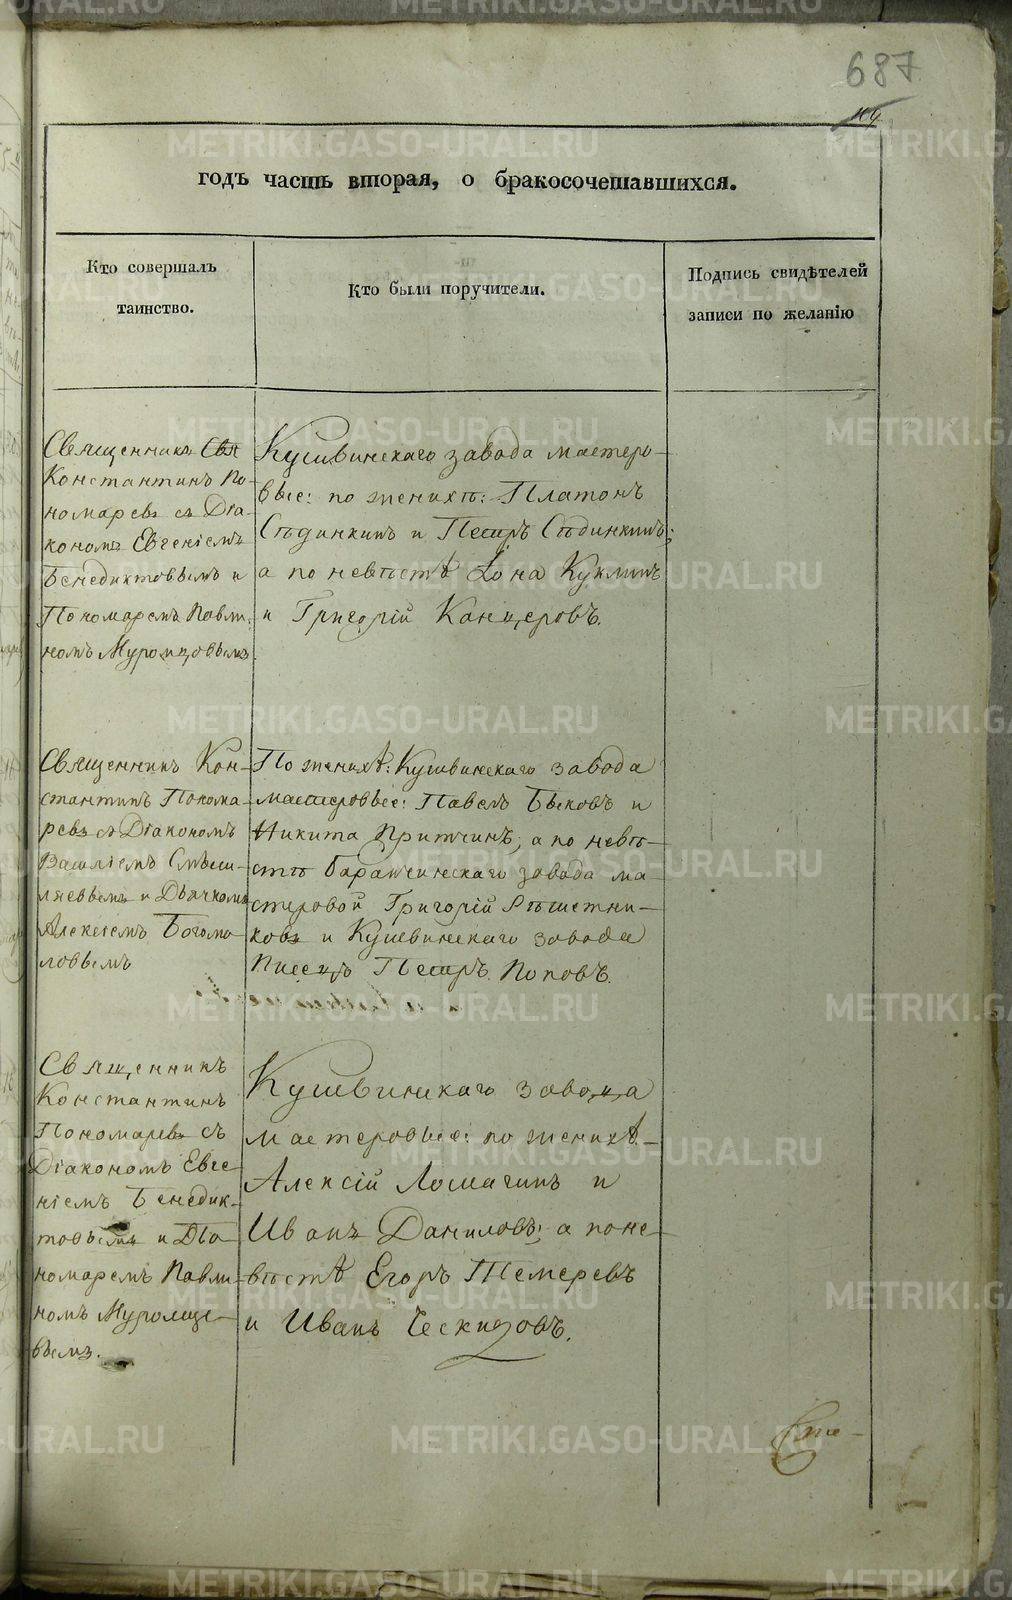 687
годъ часть вторая, о бракосочетавшихся.
Кто совершалъ
таинство.
Кто были поручители.
Подпись свидѣтелей
записи по желанію
Священникъ
Константинъ По-
номаревъ съ Діа-
кономъ Евгеніемъ
Бенедиктовымъ и
Пономаремъ Павли-
номъ Муромцовымъ
Кушвинскаго завода мастеро-
вые: по женихѣ: Платонъ
Сѣдинкинъ и Петръ Сѣдинкинъ;
а по невѣстѣ Іона Куклинъ
и Григорій Канцеровъ.
Священникъ Кон-
стантинъ Понома-
ревъ съ Діакономъ
Василіемъ
и Дьячкомъ
Алексіемъ Богомо-
ловымъ
По женихѣ: Кушвинскаго завода
мастеровые: Павелъ Быковъ и
Никита Притчинъ, а по невѣ-
стѣ Баранчинскаго завода ма-
стеровой Григорій Рѣшетни-
ковъ и Кушвинскаго завода
Писецъ Петръ Поповъ.
Священникъ
Константинъ
Пономаревъ съ
Діакономъ Евге-
ніемъ Бенедик-
товымъ и По-
номаремъ Павли-
номъ Муромце-
вымъ.
Кушвинскаго завода
мастеровые: по женихѣ
Алексій Ломагинъ и
Иванъ Даниловъ; а по не-
вѣстѣ Егоръ Темеревъ
и Иванъ Ческидовъ.
METRIKI.GASO-URAL.RU